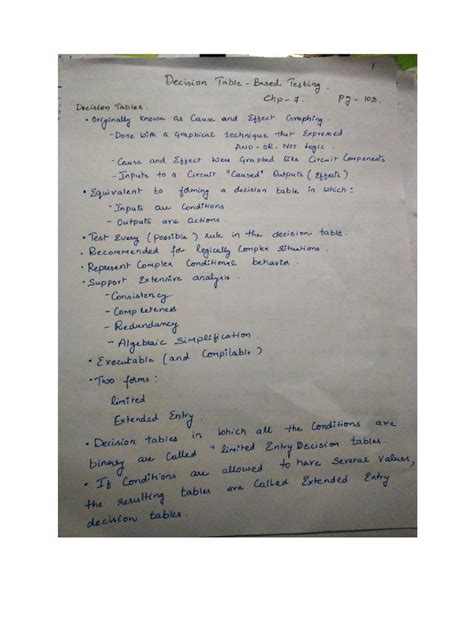 1
Decision Table - Based Testing.
Chp - 7 Pg - 103
Decision Tables.
• Originally known as Cause and Effect Graphing.
- Done with a Graphical technique that Expressed
AND - OR - NOT Logic.
- Cause and Effect Were Graphed like Circuit Components.
- Inputs to a Circuit "Caused" Outputs (Effects)
• Equivalent to forming a decision table in which:
- Inputs are Conditions
- Outputs are Actions.
• Test Every (possible) rule in the decision table.
• Recommended for logically Complex Situations.
• Represent Complex Conditional behavior.
• Support Extensive analysis.
- Consistency
- Completeness
- Redundancy
- Algebraic Simplification.
• Executable (and Compilable)
• Two forms:
limited
Extended Entry.
• Decision tables in which all the Conditions are
binary are Called "limited Entry Decision tables.
• If Conditions are allowed to have Several Values,
the resulting tables are Called Extended Entry
decision tables.